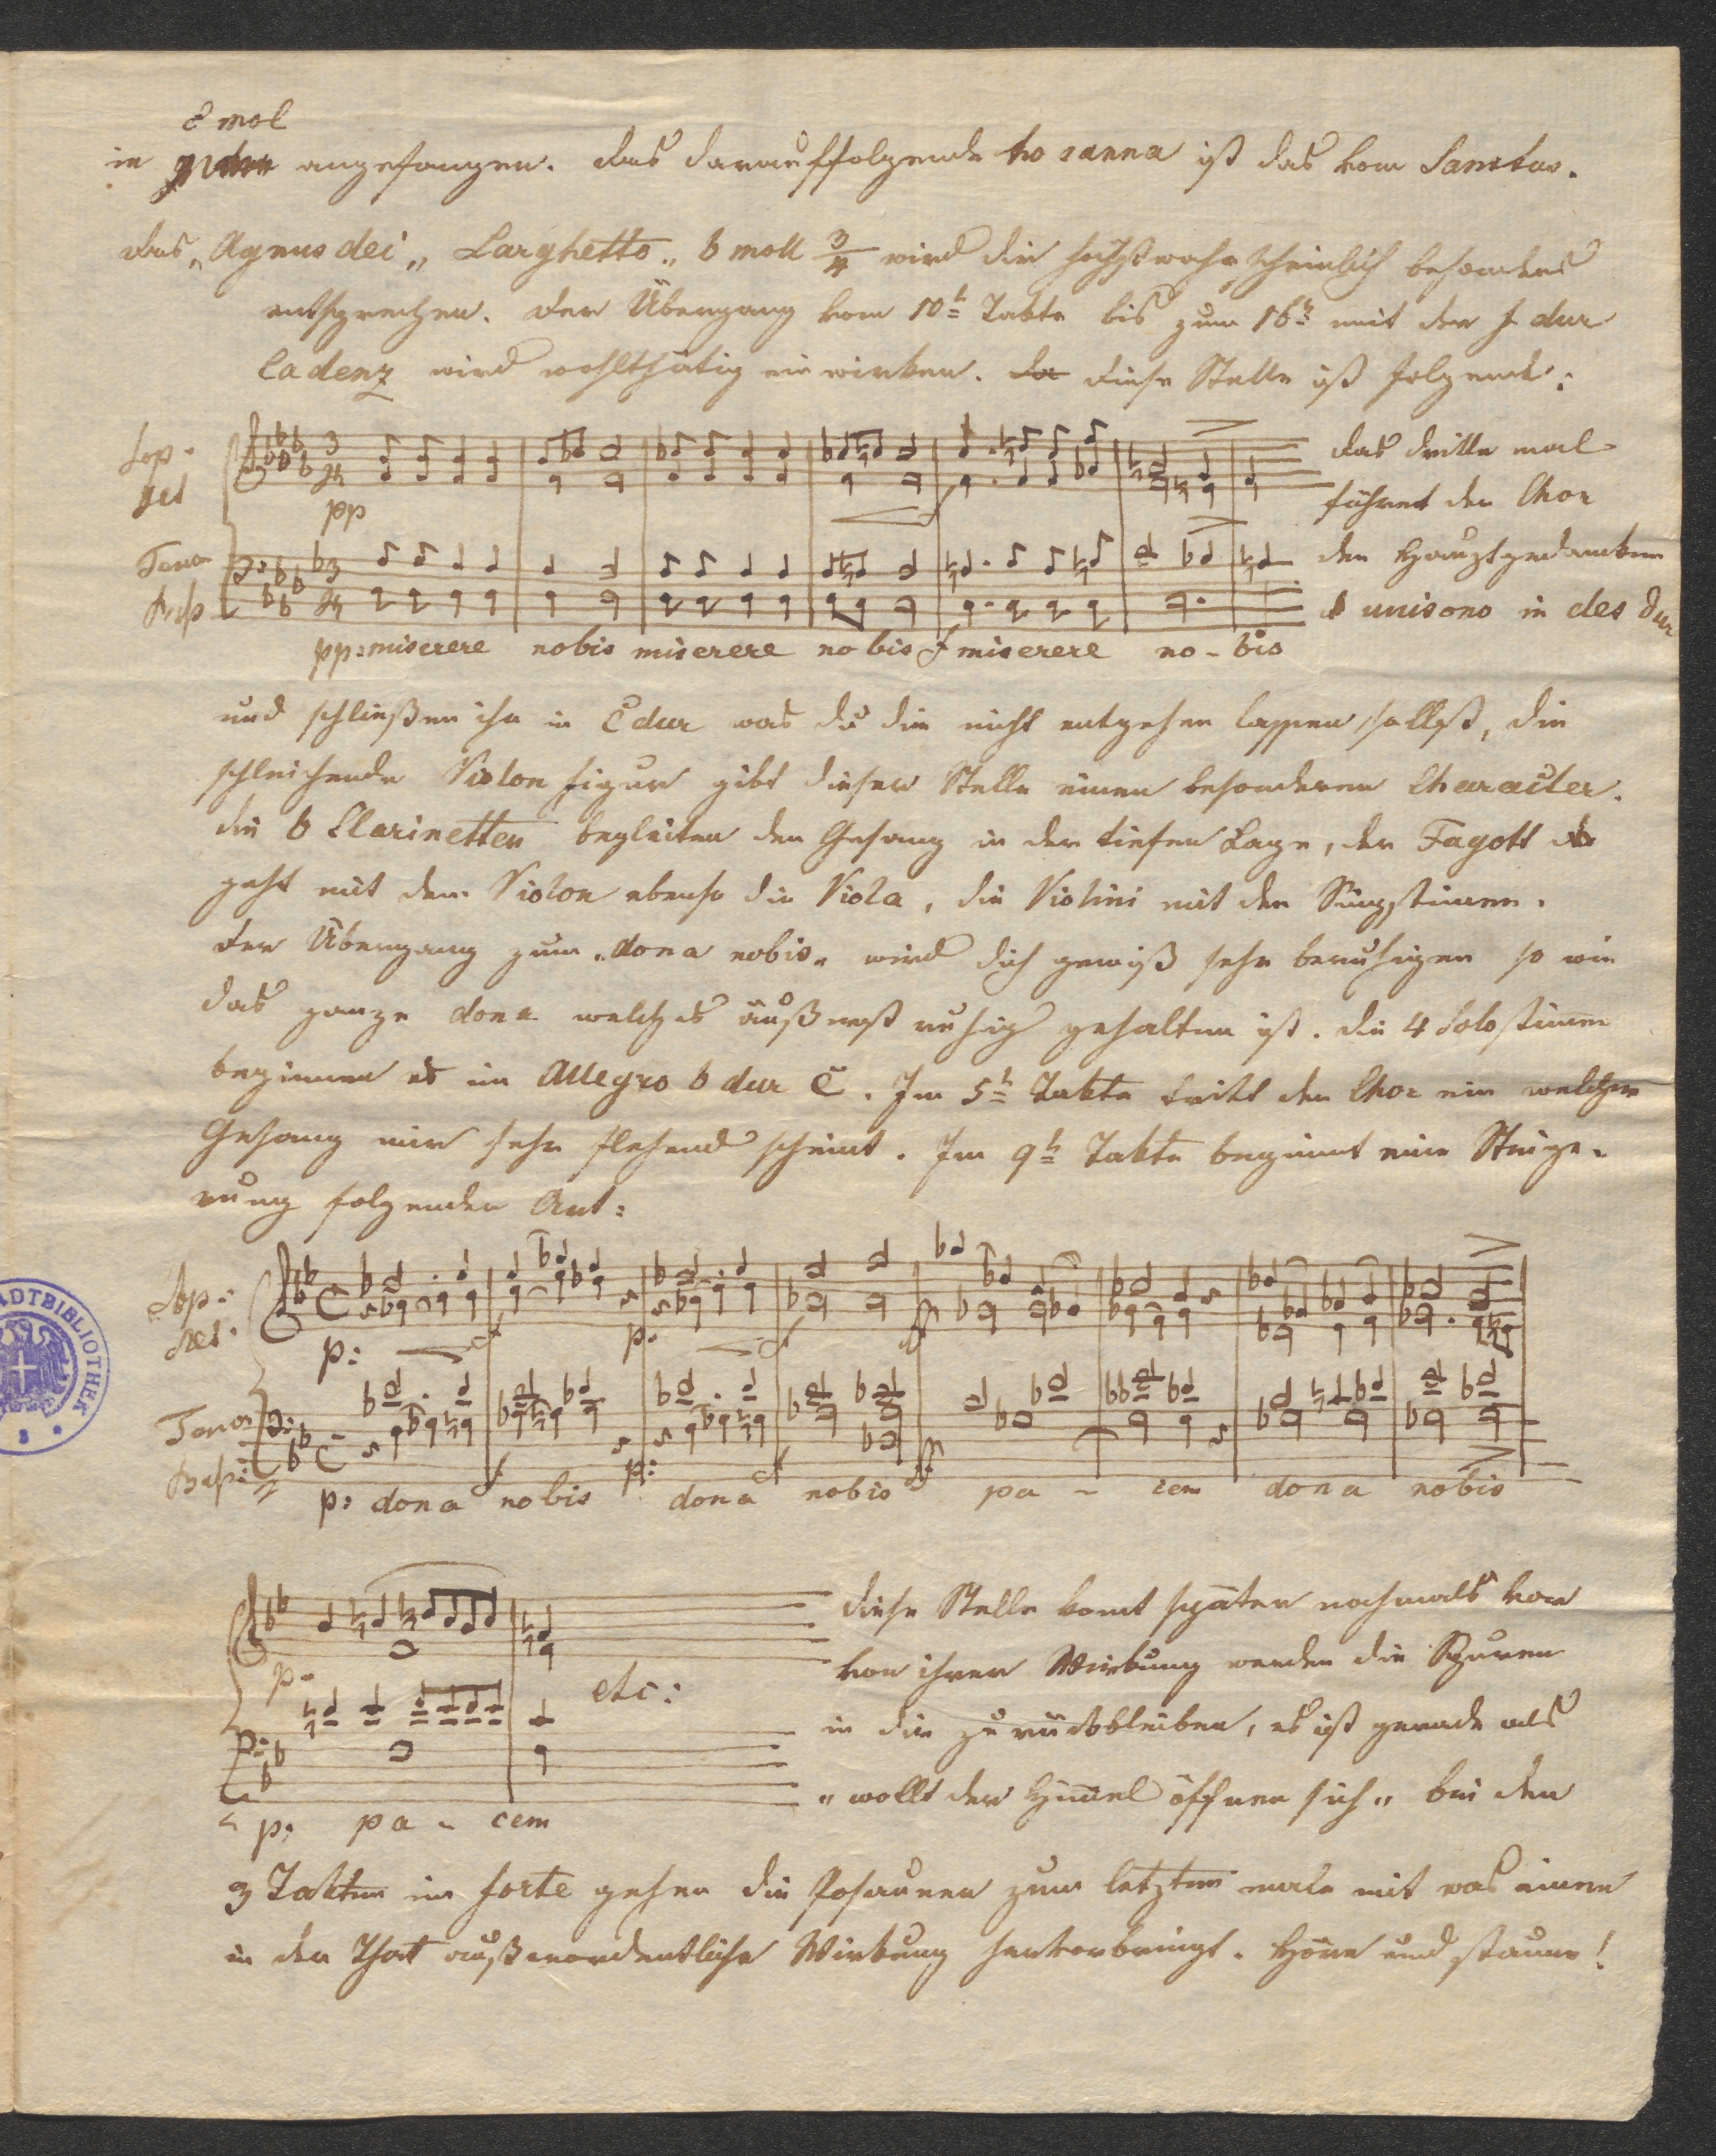 c mol
in angefangen. das darauffolgende hosanna ist das vom Sanctus.
das „Agnus dei„ Larghetto„ b moll 3/4 wird dir höchstwahrscheinlich besonders
entsprechen. der Übergang vom 10t Takte bis zum 16t mit der f dur
Cadenz wird wohlthätig einwirken. diese Stelle ist folgende:
Sop.
Alt
pp
Tenor
Baß
pp: miserere nobis miserere nobis f miserere no - bis
das dritte mal
führet der Chor
den Hauptgedanken
unisono in des dur
und schließen ihn in C dur was du dir nicht entgehen lassen sollst, die
schleichende Violon figur gibt dieser Stelle einen besonderen Character.
die b Clarinetten begleiten den Gesang in der tiefen Lage, der Fagott
geht mit dem Violon ebenso die Viola, die Violini mit den Singstimmen.
der Übergang zum „dona nobis„ wird dich gewiß sehr beruhigen so wie
das ganze dona welches äußerst ruhig gehalten ist. die 4 Solostimmen
beginnen es im Allegro b dur C. Im 5t Takte tritt der Chor ein welcher
Gesang mir sehr flehend scheint. Im 9t Takte beginnt eine Steige-
rung folgender Art:
Sop:
Alt.
p: f p. f ff
Tenor
Baß:
p: dona f nobis p: dona f nobis ff pa - cem dona nobis
p.
etc:
p: pa - cem
diese Stelle komt später nochmals vor
von ihrer Wirkung werden die Spuren
in dir zurückbleiben, es ist gerade als
„wollt der Himel öffnen sich„ bei den
3 Takten im forte gehen die Posaunen zum letzten male mit was eine
in der That außerordentliche Wirkung hervorbringt. Höre und staune!
ADTBIBLIOTHEK